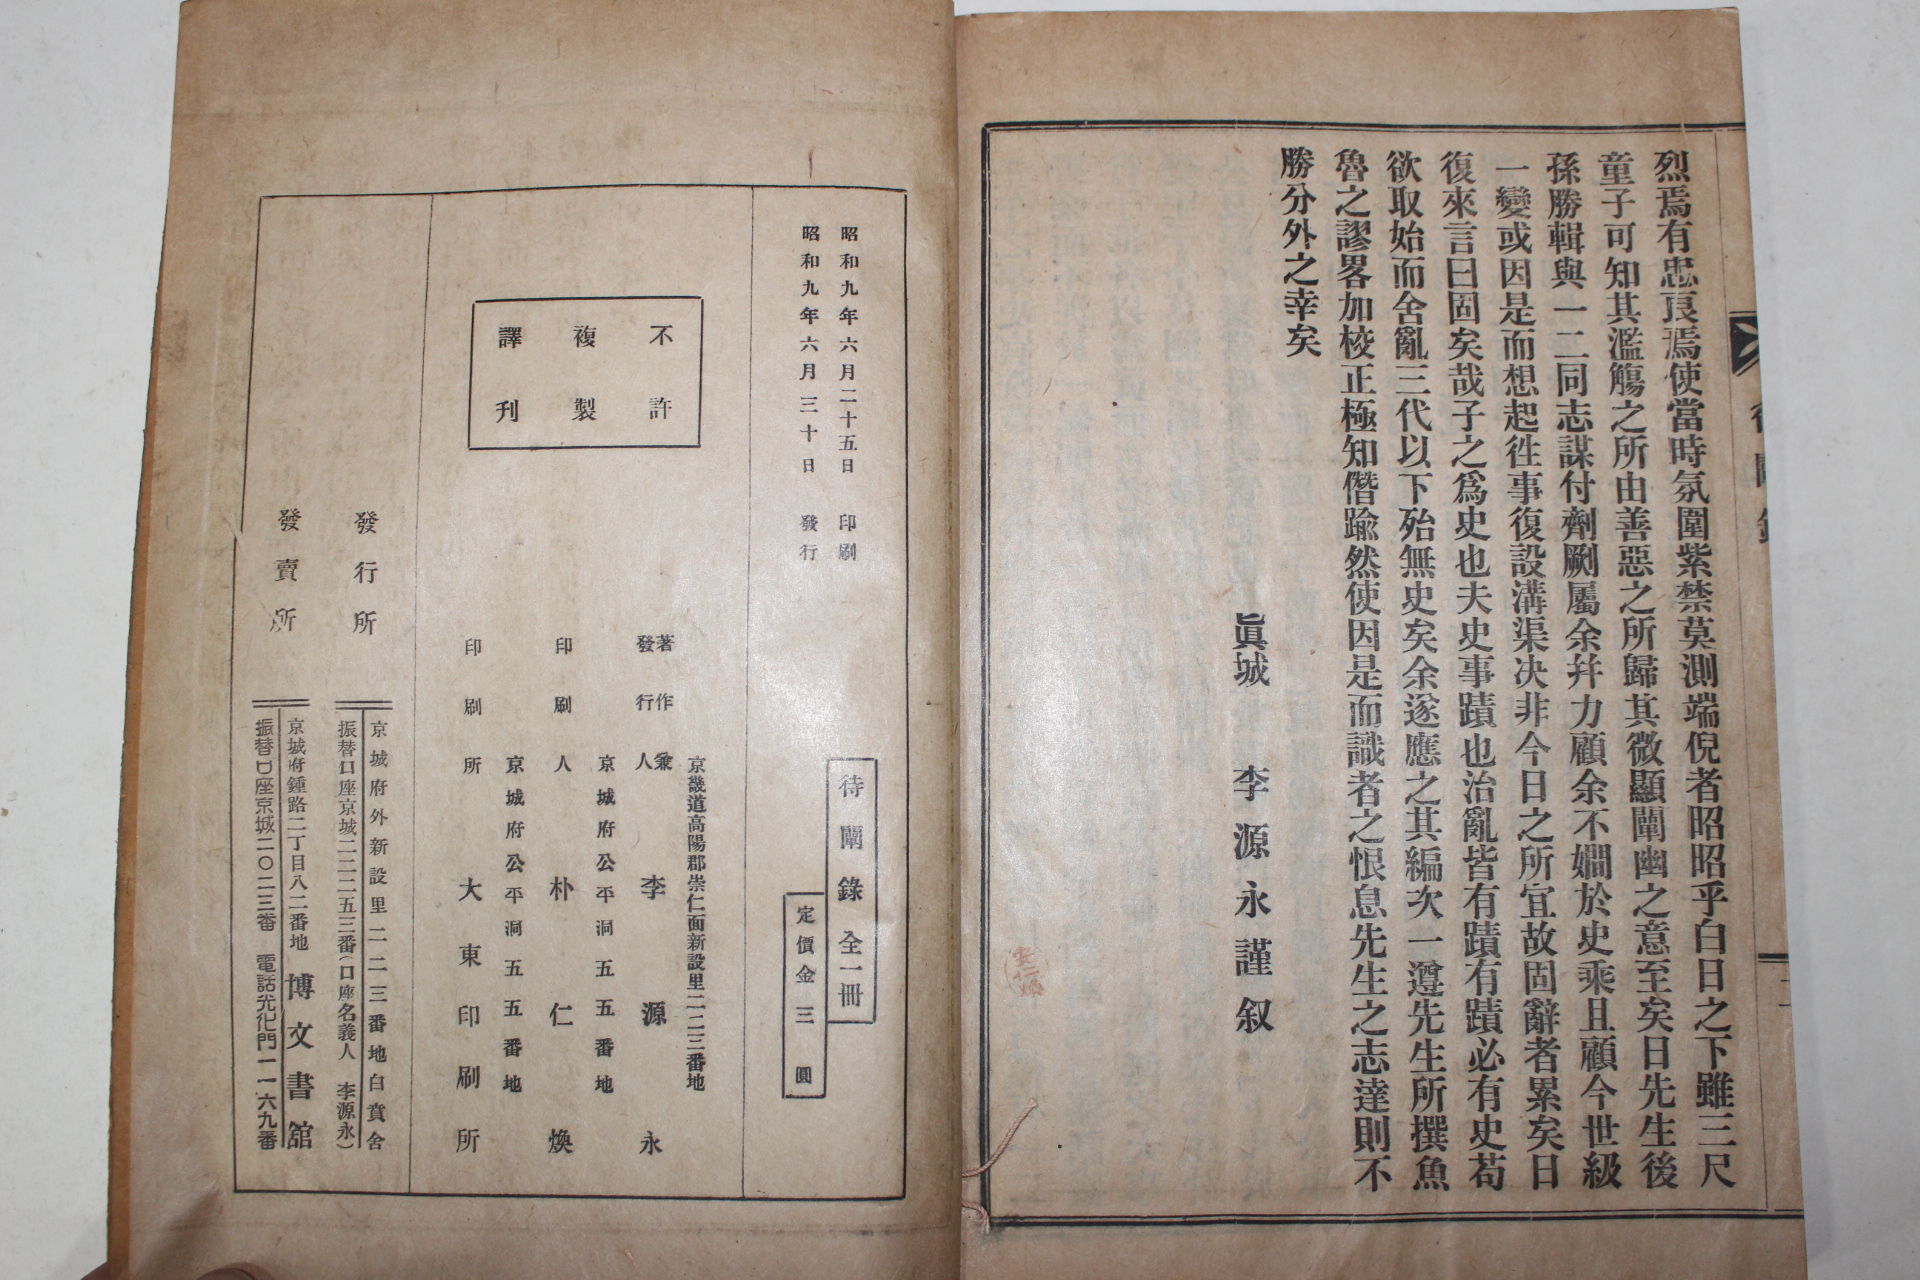 烈焉有忠良焉使當時氛圍紫禁莫測端倪者昭昭乎白日之下雖三尺
童子可知其濫觴之所由善惡之所歸其微顯闡幽之意至矣日先生後
孫勝輯與一二同志謀付劑劂屬余幷力顧余不嫺於史乘且顧今世級
一變或因是而想起徃事復設溝渠決非今日之所宜故固辭者累矣日
復來言曰固矣哉子之爲史也夫史事蹟也治亂皆有蹟有蹟必有史苟
欲取始而舍亂三代以下殆無史矣余遂應之其編次一遵先生所撰魚
魯之謬畧加校正極知僭踰然使因是而識者之恨息先生之志達則不
勝分外之幸矣
眞城 李源永謹叙
昭和九年六月二十五日 印刷
昭和九年六月三十日 發行
待闡錄 全一冊
定價金 三 圓
不許
複製
譯刊
京畿道高陽郡崇仁面新設里二二三番地
著作兼
發行人 李源永
京城府公平洞五五番地
印刷人 朴仁煥
京城府公平洞五五番地
印刷所 大東印刷所
發行所
京城府外新設里二二三番地白賁舍
振替口座京城二二二五三番(口座名義人 李源永)
發賣所
京城府鍾路二丁目八二番地 博文書舘
振替口座京城二〇二三番 電話光化門一一六九番